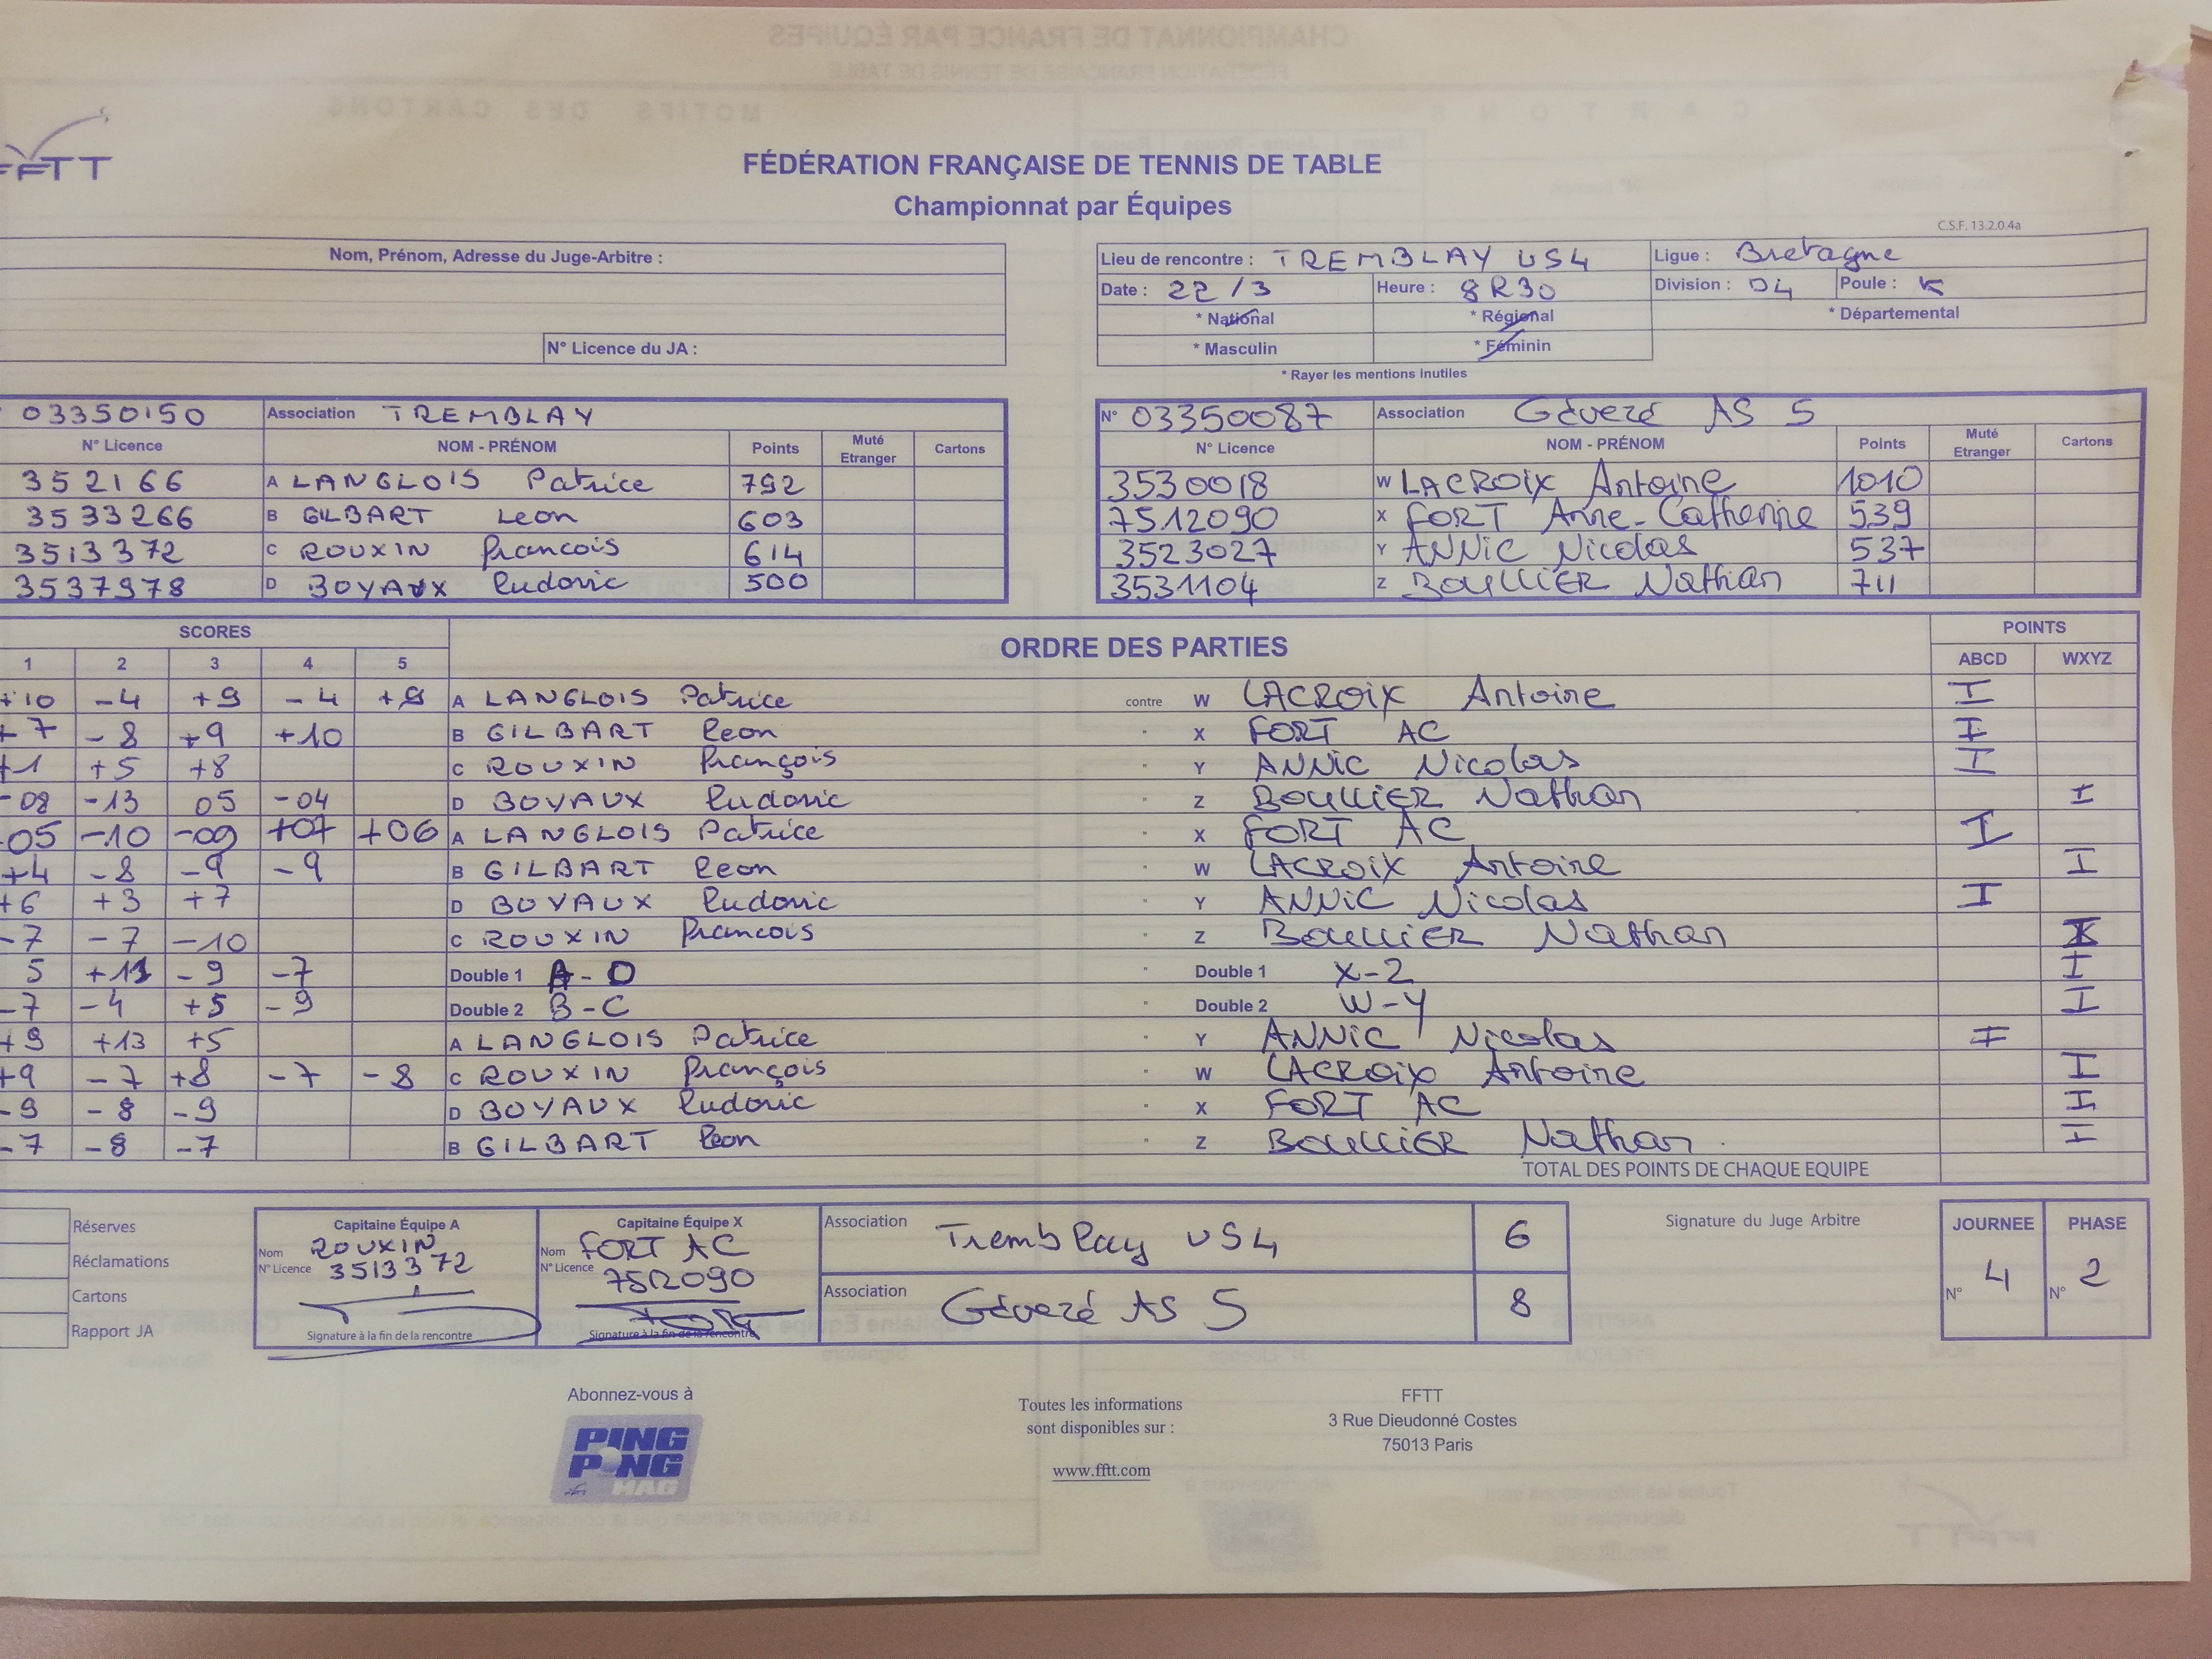 FFTT
FÉDÉRATION FRANÇAISE DE TENNIS DE TABLE
Championnat par Équipes
C.S.F. 13.2.0.4a
Nom, Prénom, Adresse du Juge-Arbitre :
N° Licence du JA :
Lieu de rencontre : TREMBLAY US4 Ligue : Bretagne
Date : 22/3 Heure : 8R30 Division : D4 Poule : K
* National * Régional * Départemental
* Masculin * Féminin
* Rayer les mentions inutiles
03350150 Association TREMBLAY
N° Licence NOM - PRÉNOM Points Muté Etranger Cartons
352166 A LANGLOIS Patrice 792
3533266 B GILBART Leon 603
3513372 C ROUXIN Francois 614
3537978 D BOYAUX Ludovic 500
N° 03350087 Association Gévezé AS 5
N° Licence NOM - PRÉNOM Points Muté Etranger Cartons
3530018 W LACROIX Antoine 1010
7512090 X FORT Anne-Catherine 539
3523027 Y ANNIC Nicolas 537
3531104 Z BOULLIER Nathan 711
SCORES ORDRE DES PARTIES POINTS
1 2 3 4 5 ABCD WXYZ
+10 -4 +9 -4 +9 A LANGLOIS Patrice contre W LACROIX Antoine I
+7 -8 +9 +10 B GILBART Leon " X FORT AC I
+1 +5 +8 C ROUXIN François " Y ANNIC Nicolas I
-08 -13 05 -04 D BOYAUX Ludovic " Z BOULLIER Nathan I
05 -10 -09 +07 +06 A LANGLOIS Patrice " X FORT AC I
+4 -8 -9 -9 B GILBART Leon " W LACROIX Antoine I
+6 +3 +7 D BOYAUX Ludovic " Y ANNIC Nicolas I
-7 -7 -10 C ROUXIN Francois " Z BOULLIER Nathan I
5 +11 -9 -7 Double 1 A-D " Double 1 X-Z I
-7 -4 +5 -9 Double 2 B-C " Double 2 W-Y I
+9 +13 +5 A LANGLOIS Patrice " Y ANNIC Nicolas I
+9 -7 +8 -7 -8 C ROUXIN François " W LACROIX Antoine I
-9 -8 -9 D BOYAUX Ludovic " X FORT AC I
-7 -8 -7 B GILBART Leon " Z BOULLIER Nathan I
TOTAL DES POINTS DE CHAQUE EQUIPE
Réserves
Réclamations
Cartons
Rapport JA
Capitaine Équipe A
Nom ROUXIN
N° Licence 3513372
Signature à la fin de la rencontre
Capitaine Équipe X
Nom FORT AC
N° Licence 7512090
Signature à la fin de la rencontre
Association Tremblay US4 6
Association Gévezé AS 5 8
Signature du Juge Arbitre
JOURNEE PHASE
N° 4 N° 2
Abonnez-vous à
PING PONG MAG
Toutes les informations
sont disponibles sur :
www.fftt.com
FFTT
3 Rue Dieudonné Costes
75013 Paris